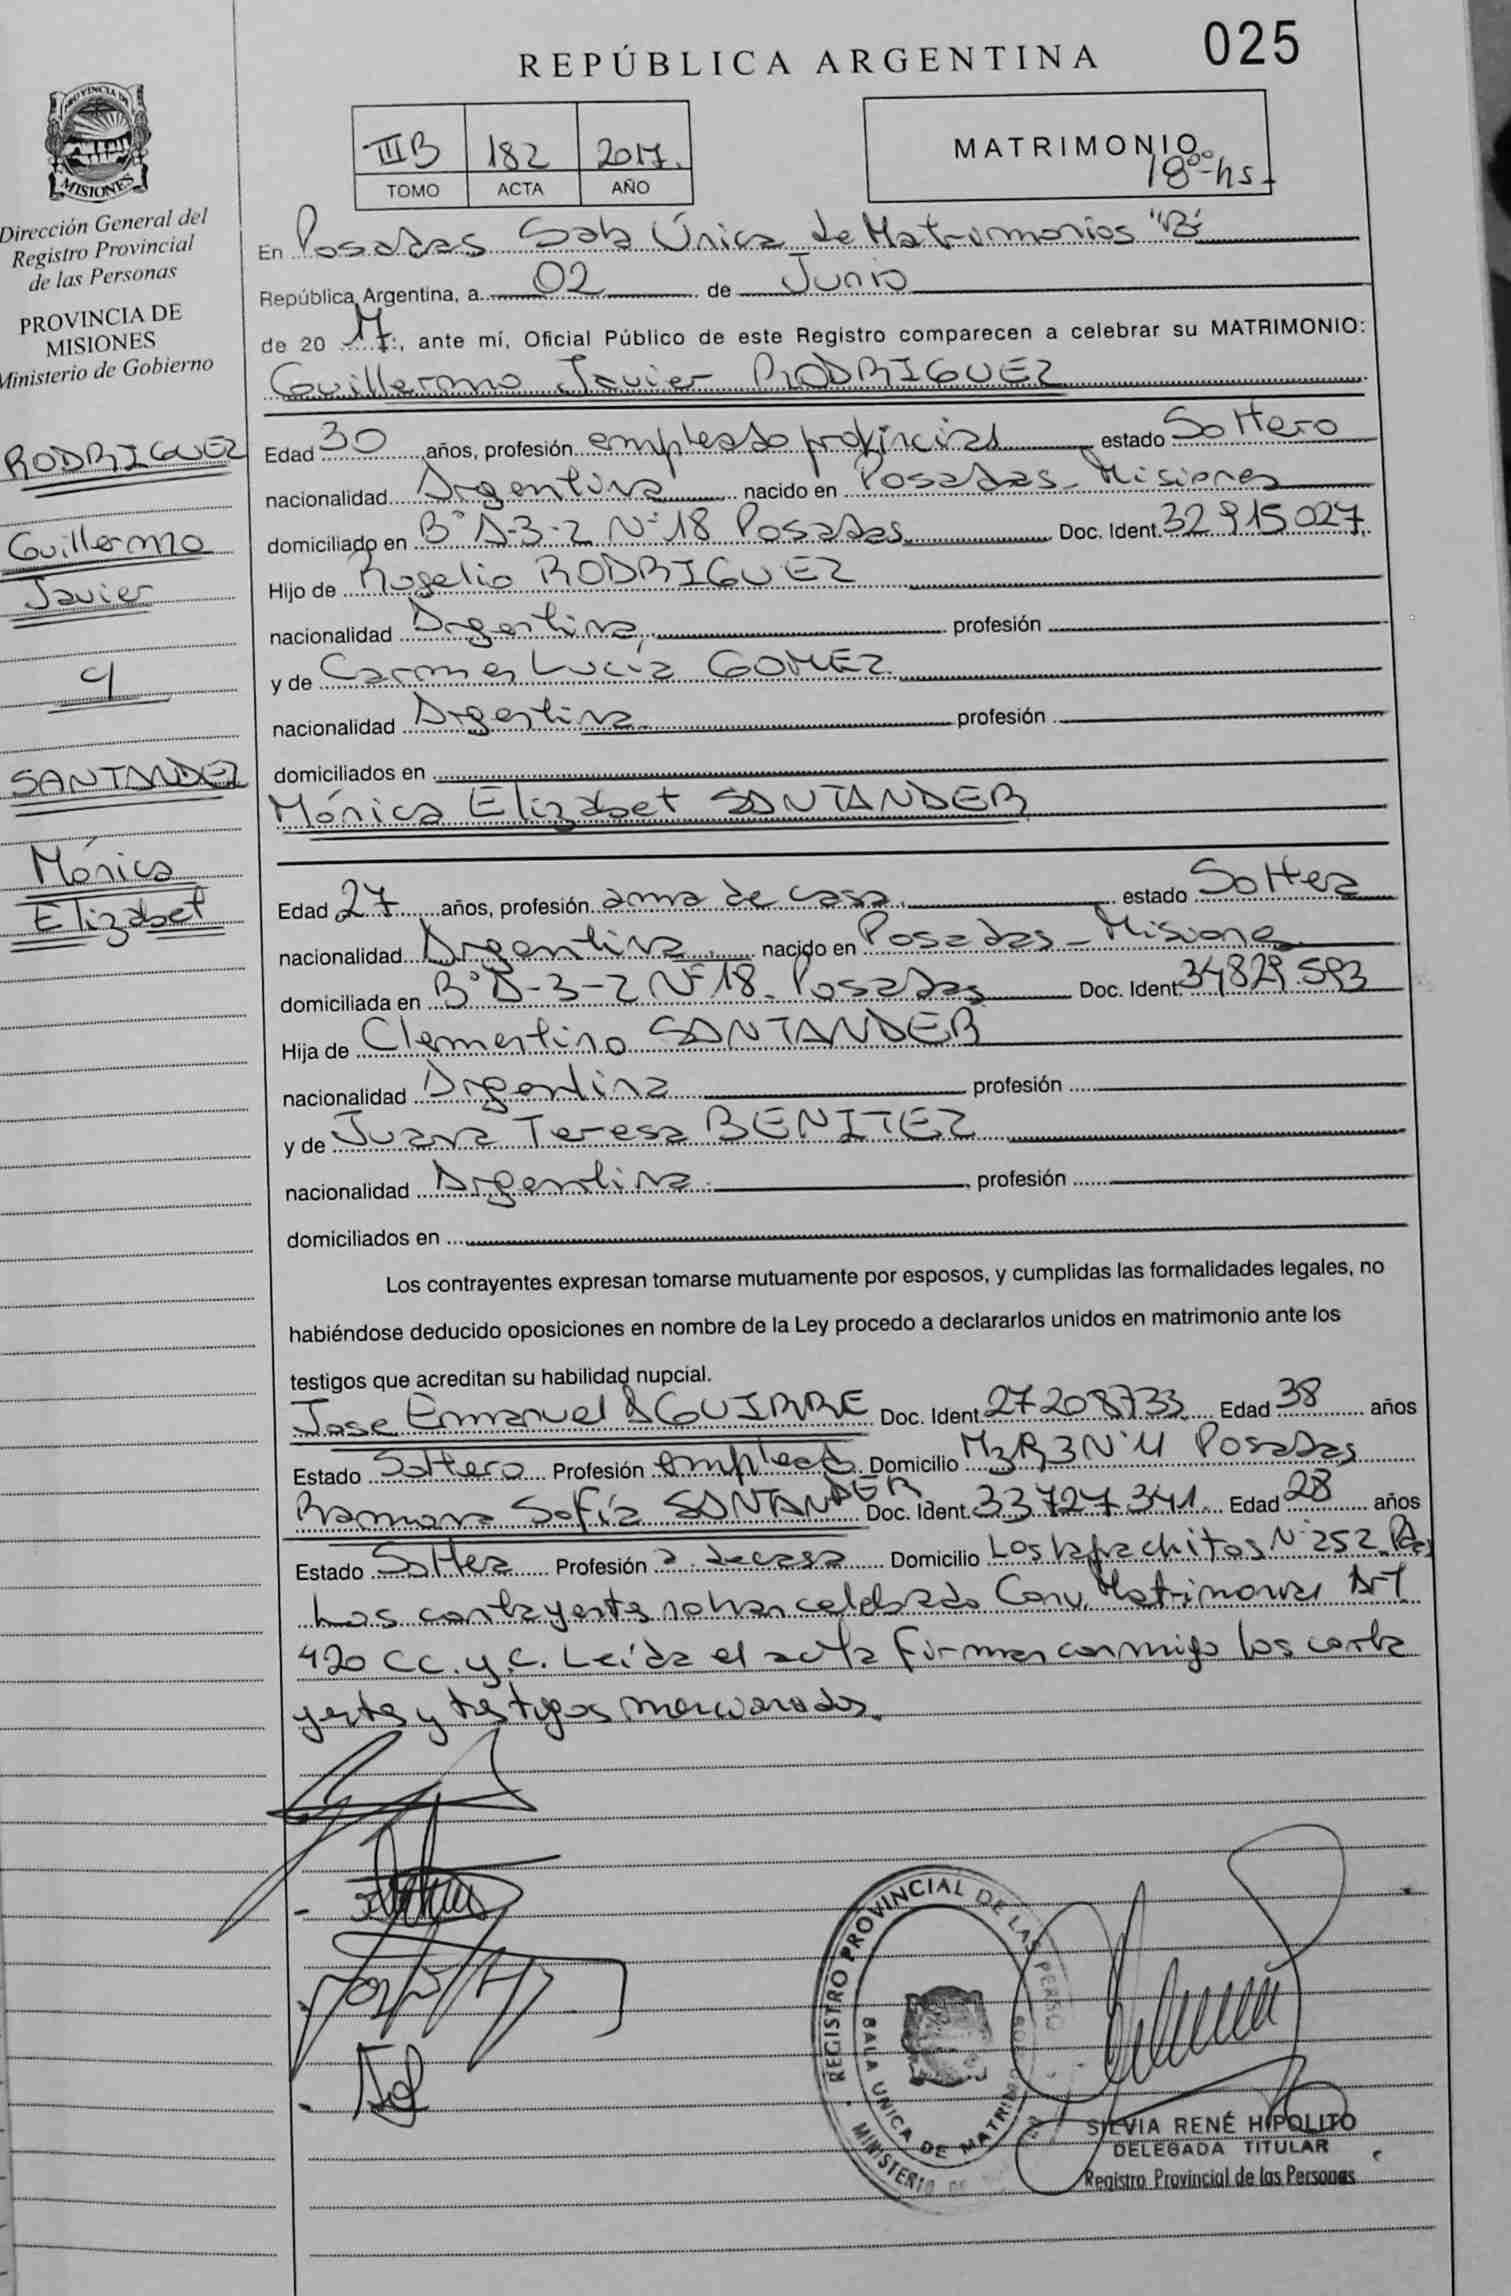 REPÚBLICA ARGENTINA 025
PROVINCIA DE
MISIONES
Dirección General del
Registro Provincial
de las Personas
PROVINCIA DE
MISIONES
Ministerio de Gobierno
RODRIGUEZ
Guillermo
Javier
y
SANTANDER
Mónica
Elizabet
III B 182 2017.
TOMO ACTA AÑO
MATRIMONIO
18⁰⁰ hs.
En Posadas Sala Única de Matrimonios "B"
República Argentina, a 02 de Junio
de 20 17, ante mí, Oficial Público de este Registro comparecen a celebrar su MATRIMONIO:
Guillermo Javier RODRIGUEZ
Edad 30 años, profesión empleado provincial estado Soltero
nacionalidad Argentina nacido en Posadas - Misiones
domiciliado en B° A-3-2 N° 18 Posadas Doc. Ident. 32.915.027
Hijo de Rogelio RODRIGUEZ
nacionalidad Argentina profesión
y de Carmen Lucía GOMEZ
nacionalidad Argentina profesión
domiciliados en
Mónica Elizabet SANTANDER
Edad 27 años, profesión ama de casa estado Soltera
nacionalidad Argentina nacido en Posadas - Misiones
domiciliada en B° A-3-2 N° 18 - Posadas Doc. Ident. 34829.593
Hija de Clementino SANTANDER
nacionalidad Argentina profesión
y de Juana Teresa BENITEZ
nacionalidad Argentina profesión
domiciliados en
Los contrayentes expresan tomarse mutuamente por esposos, y cumplidas las formalidades legales, no
habiéndose deducido oposiciones en nombre de la Ley procedo a declararlos unidos en matrimonio ante los
testigos que acreditan su habilidad nupcial.
Jose Emanuel AGUIRRE Doc. Ident. 27208733 Edad 38 años
Estado Soltero Profesión empleado Domicilio Posadas
Ramona Sofía SANTANDER Doc. Ident. 33727341 Edad 28 años
Estado Soltera Profesión a. de casa Domicilio Los N° 252
Los contrayentes no han celebrado Conv. Matrimonial Art
420 C.C. y C. Leída el acta firman conmigo los contra
yentes y testigos mencionados.
REGISTRO PROVINCIAL DE LAS PERSO
SALA UNICA DE MATRIM
MINISTERIO DE
SILVIA RENÉ HIPOLITO
DELEGADA TITULAR
Registro Provincial de las Personas